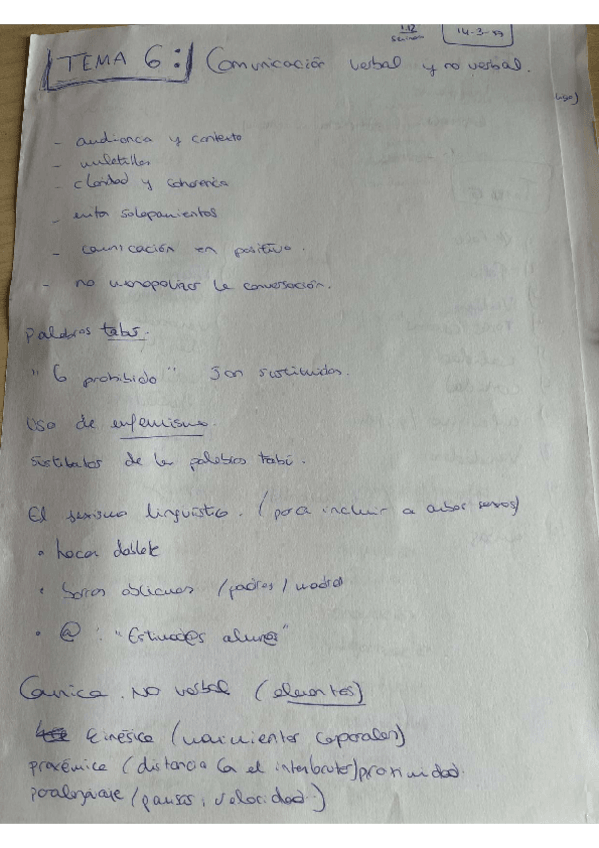 14-3-
TEMA 6: Comunicación verbal y no verbal.
- audiencia y contexto
- muletillas
- claridad y coherencia
- evitar solapamientos
- comicación en positivo.
- no monopolizar la conversación.
Palabras tabú.
"G prohibido" son sustituidas.
Uso de eufemismo.
Sustitutos de la palabras tabú.
El sexismo lingüístico. (para incluir a ambos sexos)
• hacer doblete
• barras oblicuas (padres / madres
• @ : "Estimad@s alumn@s"
Comica. No verbal (elementos)
Kinésica (movimientos corporales)
proxémica (distancia con el interlocutor) proximidad
paralenguaje (pausas, velocidad)